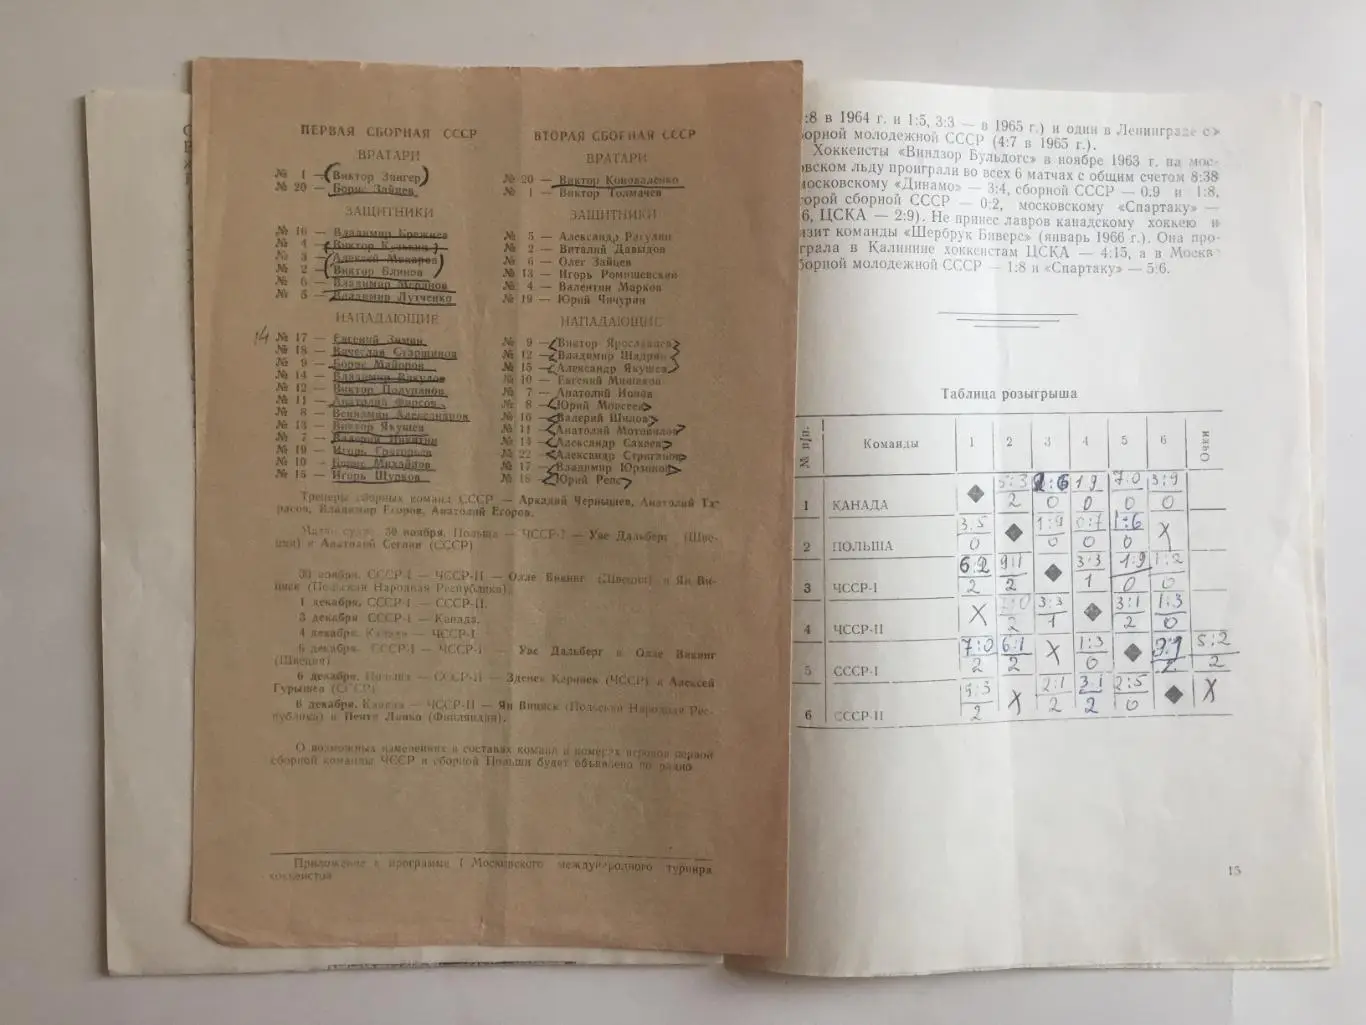 ПЕРВАЯ СБОРНАЯ СССР
ВРАТАРИ
№ 1 — Виктор Зингер
№ 20 — Борис Зайцев
ЗАЩИТНИКИ
№ 16 — Владимир Брежнев
№ 4 — Виктор Кузькин
№ 3 — Алексей Макаров
№ 2 — Виктор Блинов
№ 6 — Владимир Меринов
№ 5 — Владимир Лутченко
НАПАДАЮЩИЕ
14 № 17 — Евгений Зимин
№ 18 — Вячеслав Старшинов
№ 9 — Борис Майоров
№ 14 — Владимир Викулов
№ 12 — Виктор Полупанов
№ 11 — Анатолий Фирсов
№ 8 — Вениамин Александров
№ 13 — Виктор Якушев
№ 7 — Валерий Никитин
№ 19 — Игорь Григорьев
№ 10 — Борис Михайлов
№ 15 — Игорь Щурков
ВТОРАЯ СБОРНАЯ СССР
ВРАТАРИ
№ 20 — Виктор Коноваленко
№ 1 — Виктор Толмачев
ЗАЩИТНИКИ
№ 5 — Александр Рагулин
№ 2 — Виталий Давыдов
№ 6 — Олег Зайцев
№ 13 — Игорь Ромишевский
№ 4 — Валентин Марков
№ 19 — Юрий Чичурин
НАПАДАЮЩИЕ
№ 9 — Виктор Ярославцев
№ 12 — Владимир Шадрин
№ 15 — Александр Якушев
№ 10 — Евгений Мишаков
№ 7 — Анатолий Ионов
№ 8 — Юрий Моисеев
№ 16 — Валерий Шилов
№ 11 — Анатолий Мотовилов
№ 14 — Александр Сакеев
№ 22 — Александр Стриганов
№ 17 — Владимир Юрзинов
№ 18 — Юрий Репс
Тренеры сборных команд СССР — Аркадий Чернышев, Анатолий Та-
расов, Владимир Егоров, Анатолий Егоров.
Матчи судят: 30 ноября. Польша — ЧССР-I — Уве Дальберг (Шве-
ция) и Анатолий Сеглин (СССР)
30 ноября. СССР-I — ЧССР-II — Олле Викинг (Швеция) и Ян Вы-
циск (Польская Народная Республика).
1 декабря. СССР-I — СССР-II.
3 декабря СССР-I — Канада.
4 декабря. Канада — ЧССР-I
6 декабря. СССР-I — ЧССР-I — Уве Дальберг и Олле Викинг
(Швеция)
6 декабря. Польша — СССР-II — Зденек Коринек (ЧССР) и Алексей
Гурышев (СССР)
6 декабря. Канада — ЧССР-II — Ян Выциск (Польская Народная Рес-
публика) и Пенти (Финляндия).
О возможных изменениях в составах команд и номерах игроков первой
сборной команды ЧССР и сборной Польши будет объявлено по радио
Приложение к программе I Московского международного турнира
хоккеистов
:8 в 1964 г. и 1:5, 3:3 — в 1965 г.) и один в Ленинграде со
борной молодежной СССР (4:7 в 1965 г.).
Хоккеисты «Виндзор Бульдогс» в ноябре 1963 г. на мос-
овском льду проиграли во всех 6 матчах с общим счетом 8:38
московскому «Динамо» — 3:4, сборной СССР — 0:9 и 1:8,
торой сборной СССР — 0:2, московскому «Спартаку» —
6, ЦСКА — 2:9). Не принес лавров канадскому хоккею и
изит команды «Шербрук Биверс» (январь 1966 г.). Она про-
грала в Калинине хоккеистам ЦСКА — 4:15, а в Москве
борной молодежной СССР — 1:8 и «Спартаку» — 5:6.
Таблица розыгрыша
№ п/п. Команды 1 2 3 4 5 6 Очки
5:3 2:6 1:9 7:0 3:9
1 КАНАДА 2 0 0 0 0
3:5 1:9 0:7 1:6 X
2 ПОЛЬША 0 0 0 0
6:2 9:1 3:3 1:9 1:2
3 ЧССР-I 2 2 1 0 0
X 7:0 3:3 3:1 1:3
4 ЧССР-II 2 1 2 0
7:0 6:1 X 1:3 5:2
5 СССР-I 2 2 0 2 2
9:3 X 2:1 3:1 2:5 X
6 СССР-II 2 2 2 0
15